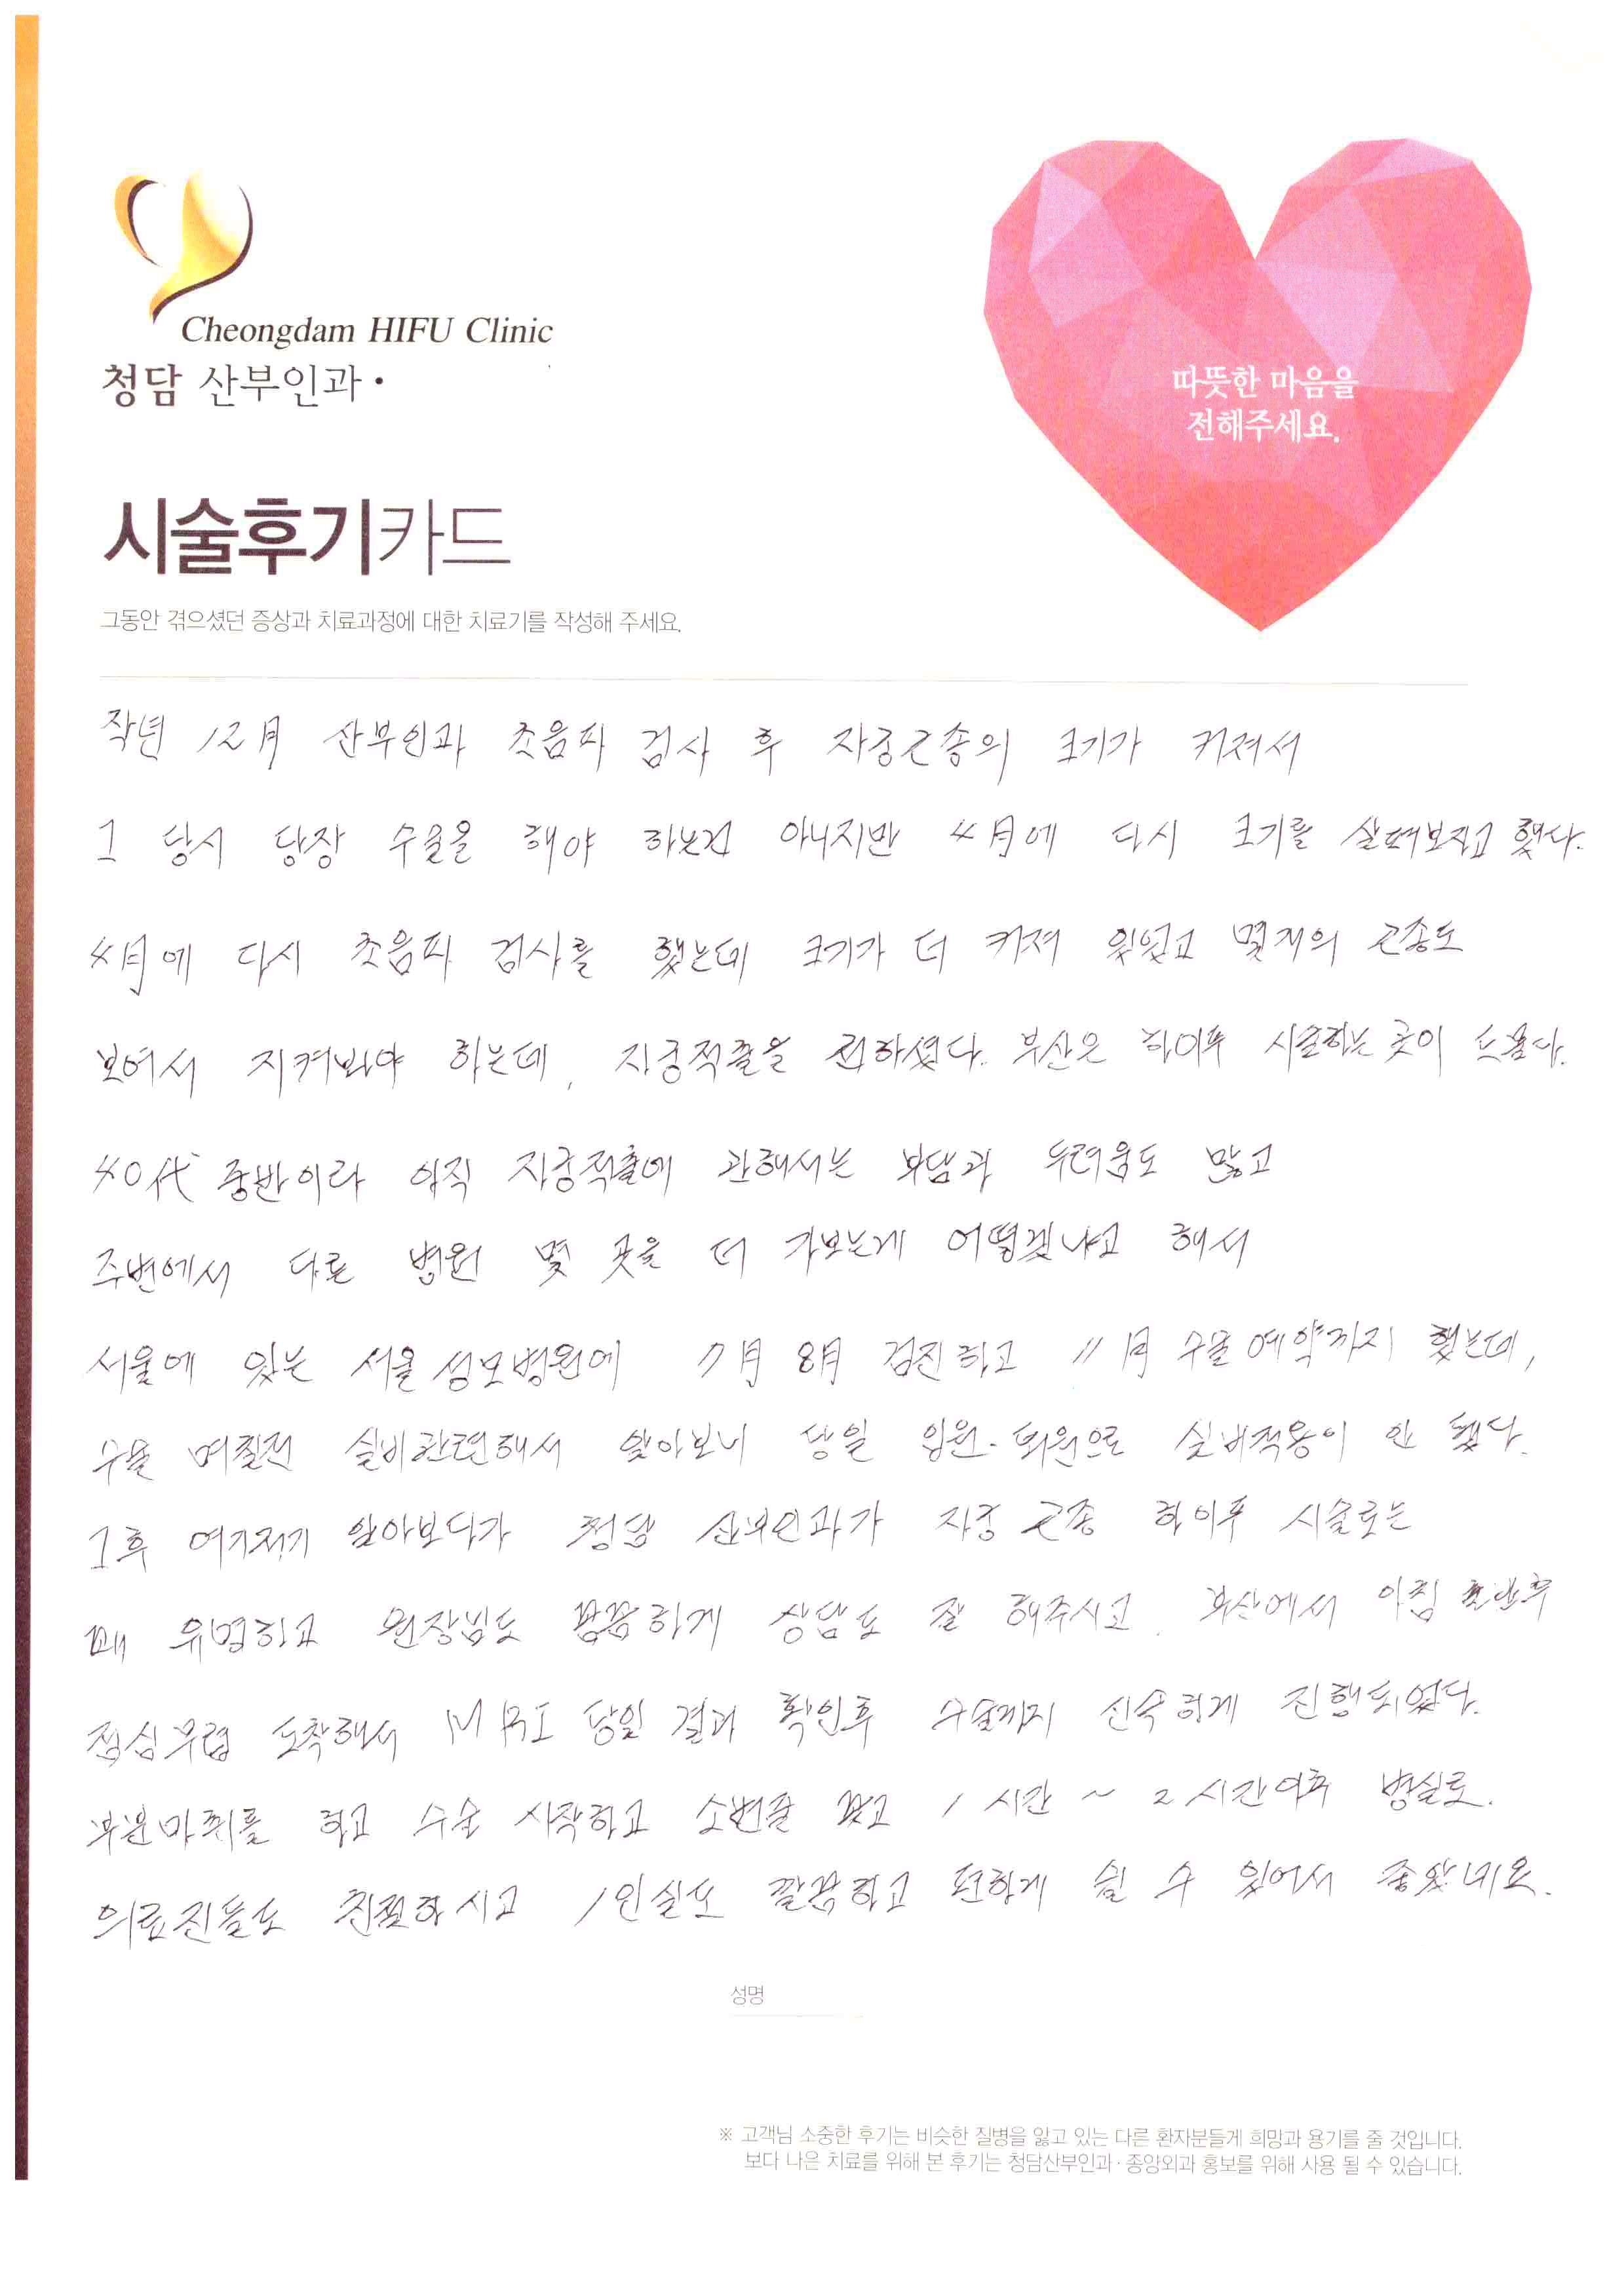 Cheongdam HIFU Clinic
청담 산부인과·
따뜻한 마음을
전해주세요.
시술후기카드
그동안 겪으셨던 증상과 치료과정에 대한 치료기를 작성해 주세요.
작년 12月 산부인과 초음파 검사 후 자궁근종의 크기가 커져서
그 당시 당장 수술을 해야 하는건 아니지만 4月에 다시 크기를 살펴보자고 했다.
4月에 다시 초음파 검사를 했는데 크기가 더 커져 있었고 몇개의 근종도
보여서 지켜봐야 하는데, 자궁적출을 권하셨다. 부산은 하이푸 시술하는 곳이 드물다.
40代 중반이라 아직 자궁적출에 관해서는 부담과 두려움도 많고
주변에서 다른 병원 몇 곳을 더 가보는게 어떻겠냐고 해서
서울에 있는 서울 성모병원에 7月 8月 검진하고 11月 수술 예약까지 했는데,
수술 며칠전 실비관련해서 알아보니 당일 입원·퇴원으로 실비적용이 안 됐다.
그후 여기저기 알아보다가 청담 산부인과가 자궁 근종 하이푸 시술로는
꽤 유명하고 원장님도 꼼꼼하게 상담도 잘 해주시고, 부산에서 아침 출발후
점심무렵 도착해서 MRI 당일 결과 확인후 수술까지 신속하게 진행되었다.
부분마취를 하고 수술 시작하고 소변줄 꽂고 1시간 ~ 2시간이후 병실로.
의료진들도 친절하시고 1인실도 깔끔하고 편하게 쉴 수 있어서 좋았네요.
성명
※ 고객님 소중한 후기는 비슷한 질병을 앓고 있는 다른 환자분들게 희망과 용기를 줄 것입니다.
보다 나은 치료를 위해 본 후기는 청담산부인과·종양외과 홍보를 위해 사용 될 수 있습니다.